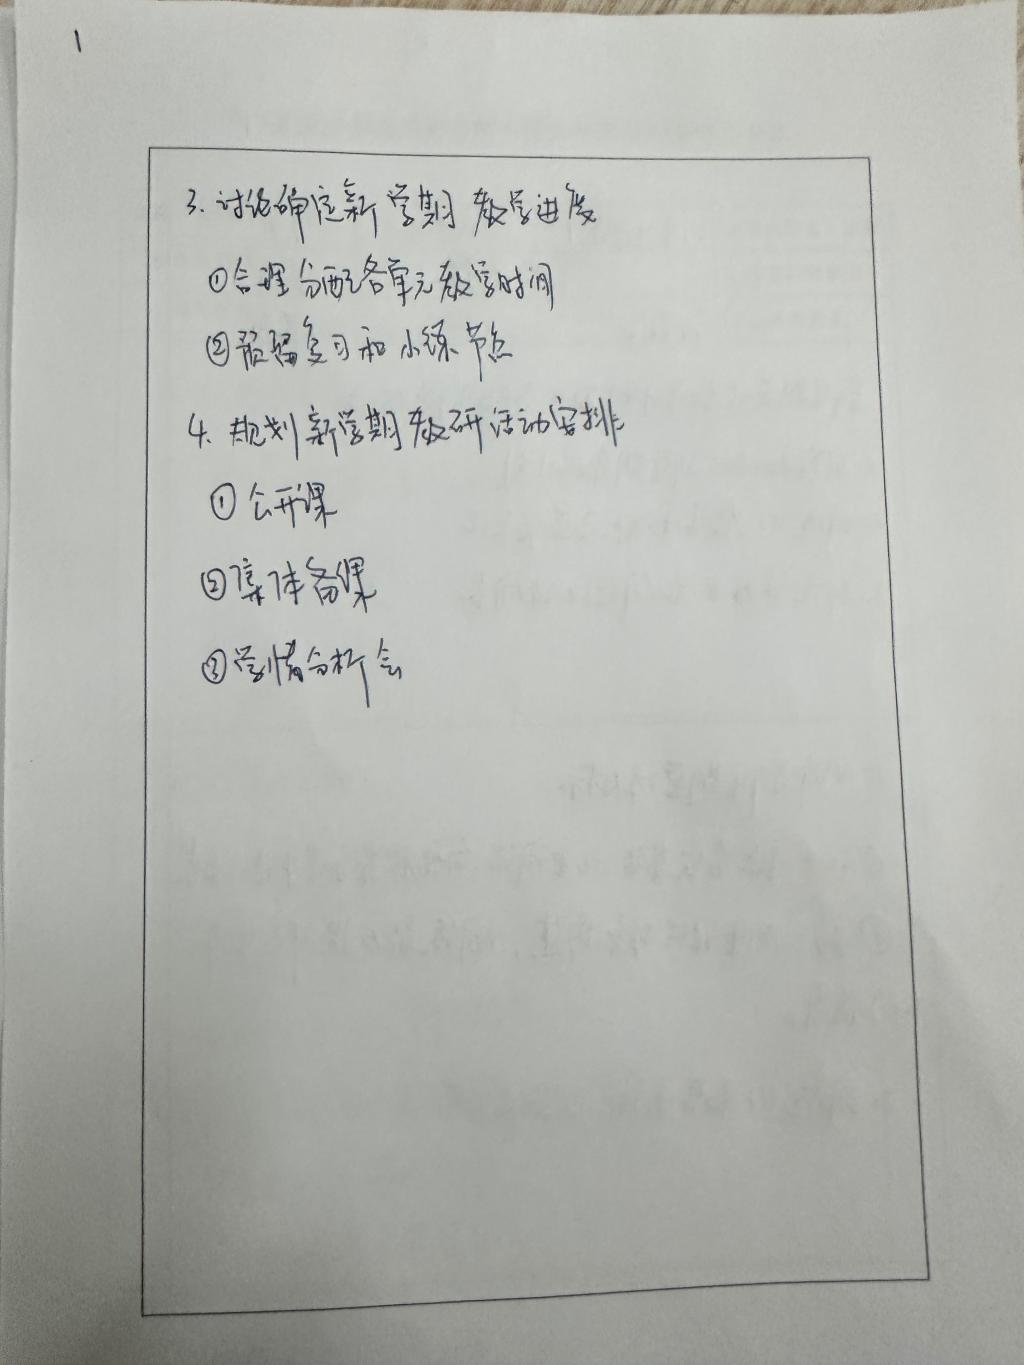 1
3. 讨论确定新学期教学进度
①合理分配各单元教学时间
②预留复习和小练节点
4. 规划新学期教研活动安排
①公开课
②集体备课
③学情分析会